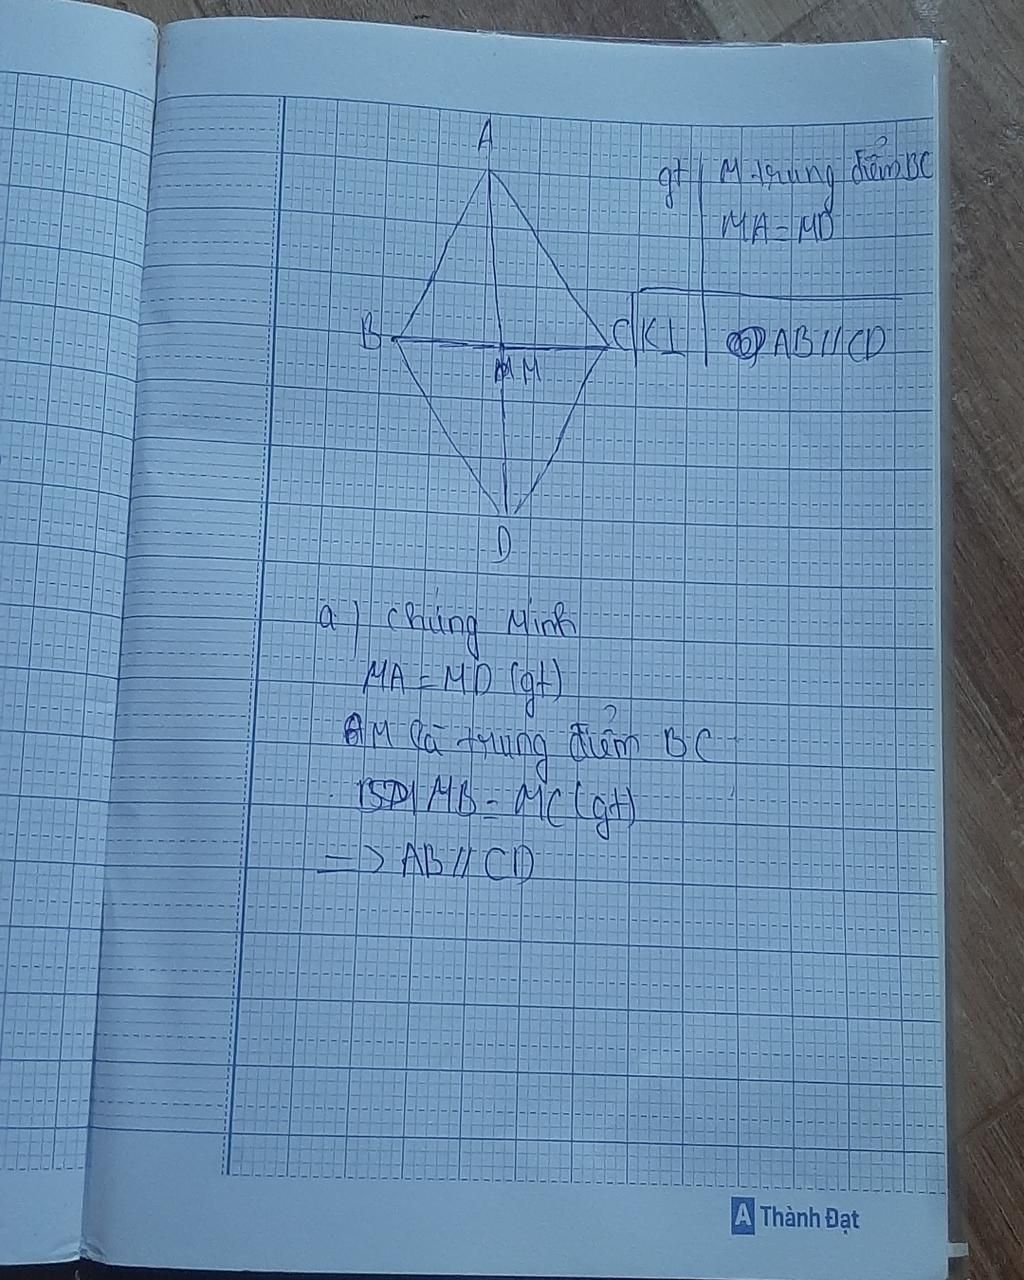 A
gt M trung điểm BC
MA = MD
B
C
KL AB // CD
M
D
a) chứng Minh
MA = MD (gt)
M là trung điểm BC
MB = MC (gt)
=> AB // CD
A Thành Đạt